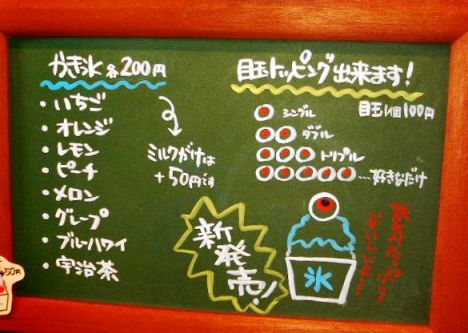 かき氷 各200円
・いちご
・オレンジ
・レモン
・ピーチ
・メロン
・グレープ
・ブルーハワイ
・宇治茶
ミルクがけは
+50円です
目玉トッピング出来ます!
目玉1個100円
シングル
ダブル
トリプル
...好きなだけ
新発売!
氷
50円